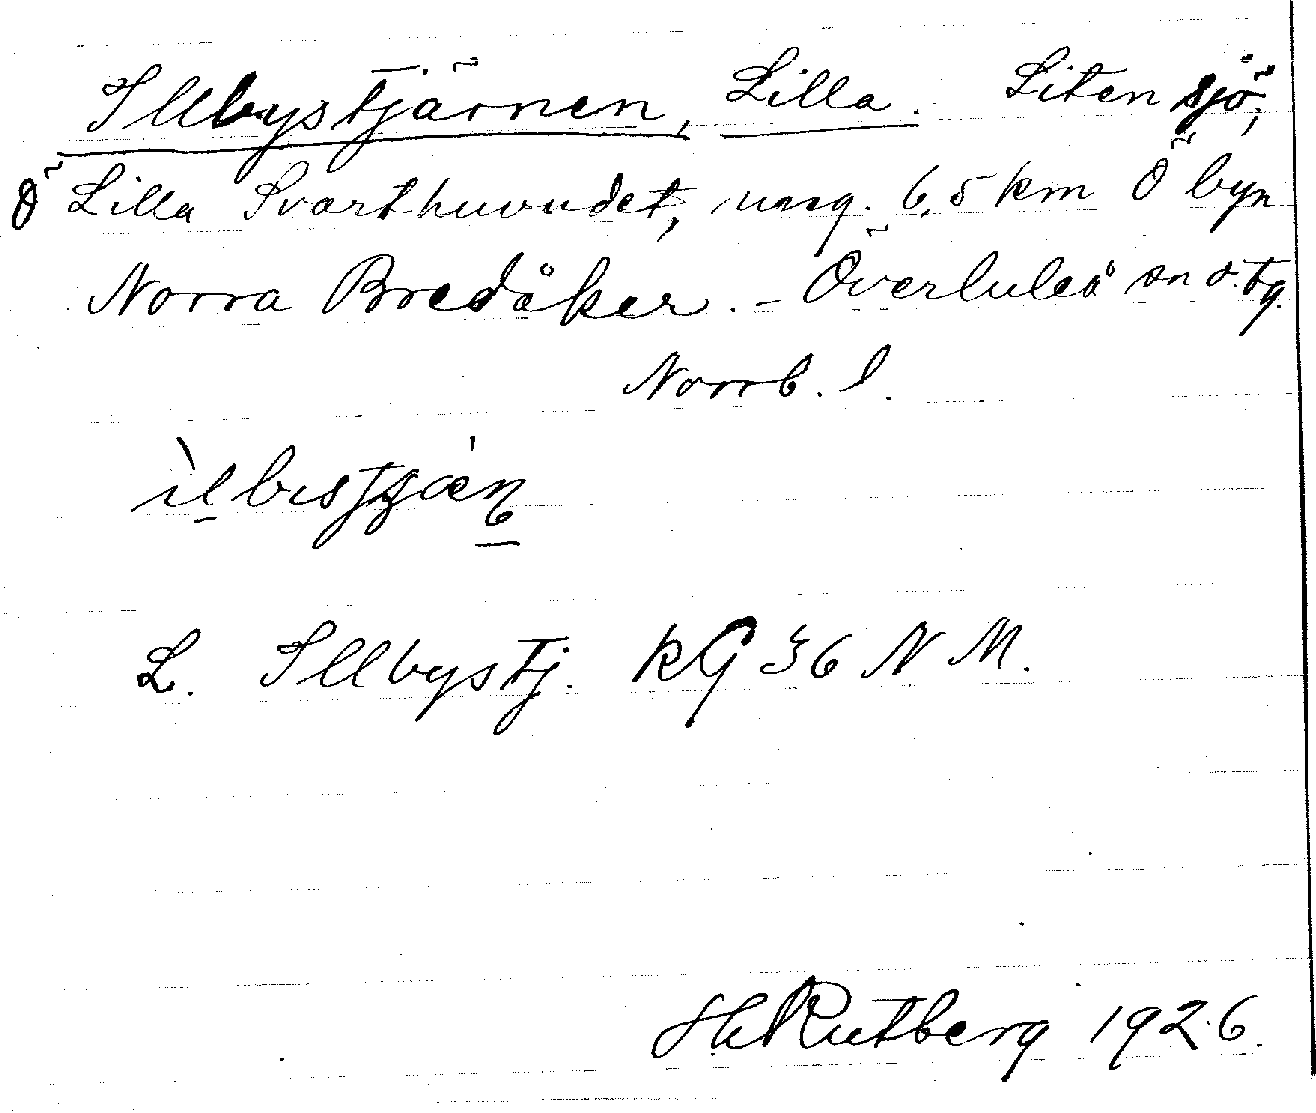 Illbystjärnen, Lilla. Liten sjö,
Ö Lilla Svarthuvudet, ung. 6,5 km Ö byn
Norra Bredåker. – Överluleå sn o. tg.
Norrb. l.
L. Illbystj. KG 36 N M.
H Rutberg 1926.